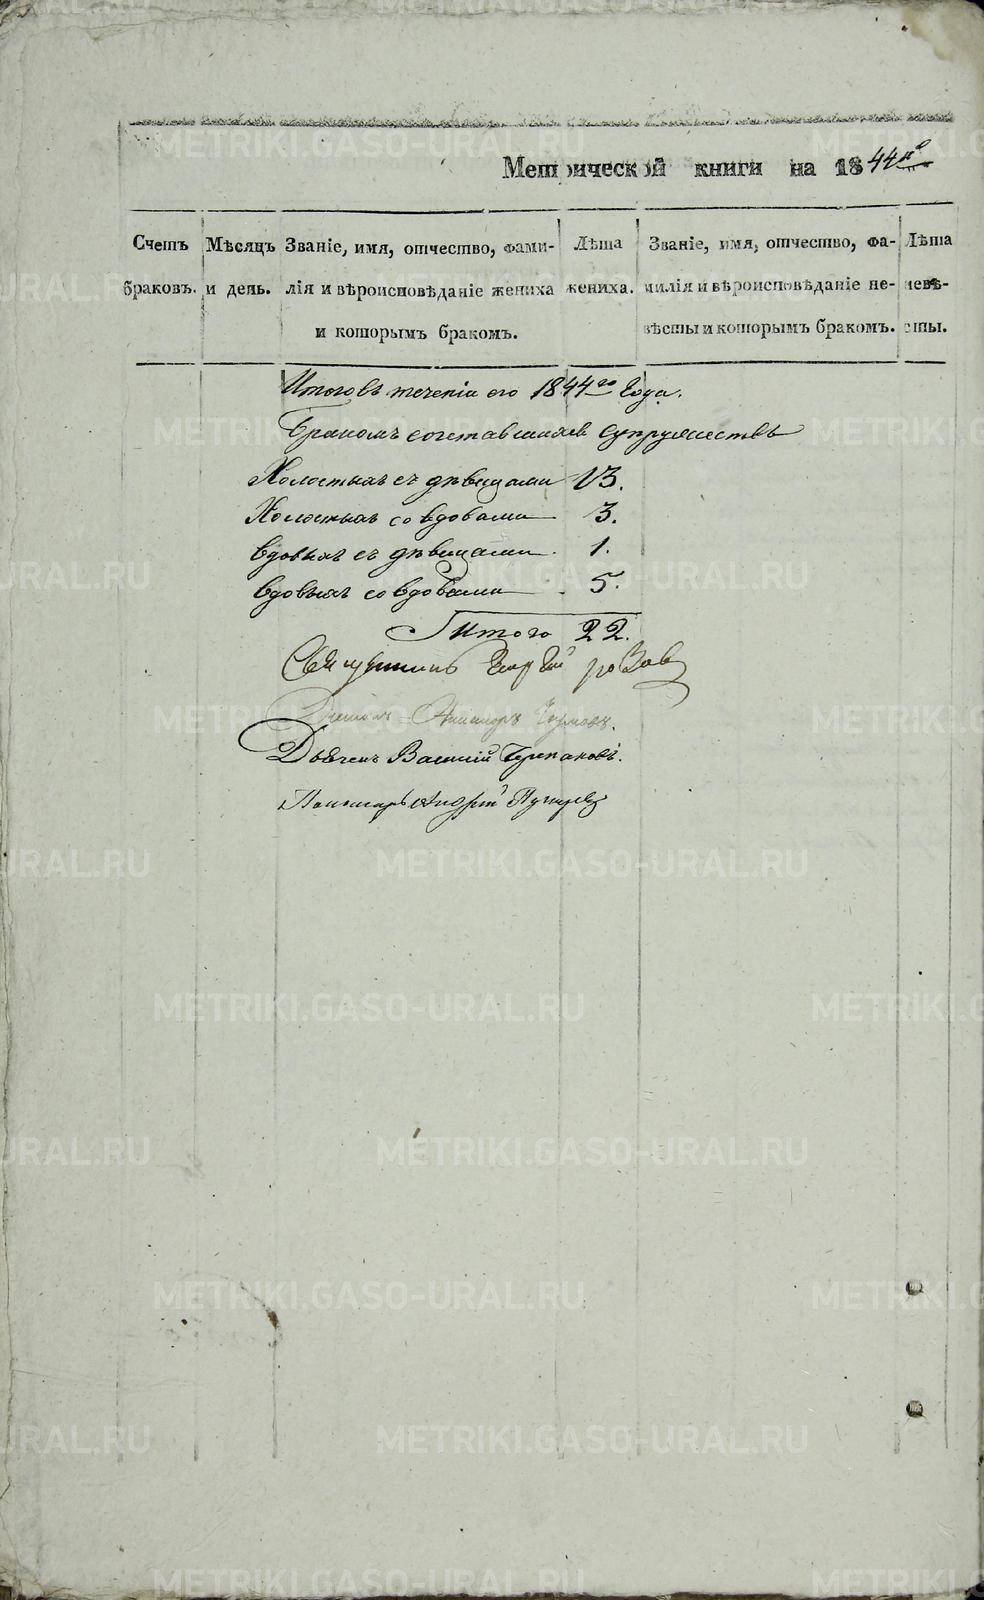 Метрической книги на 1844й
Счетъ браковъ.
Мѣсяцъ и день.
Званіе, имя, отчество, фами-
лія и вѣроисповѣданіе жениха
и которымъ бракомъ.
Лѣта
жениха.
Званіе, имя, отчество, фа-
милія и вѣроисповѣданіе не-
вѣсты и которымъ бракомъ.
Лѣта
невѣ-
сты.
Итого въ теченіи его 1844го Года.
Бракомъ сочетавшихся супружествъ
Холостыхъ съ дѣвицами 13.
Холостыхъ со вдовами 3.
вдовыхъ съ дѣвицами 1.
вдовыхъ со вдовами 5.
Итого 22.
Священникъ Георгій
Дьячекъ Василій
Пономарь Андрей
METRIKI.GASO-URAL.RU